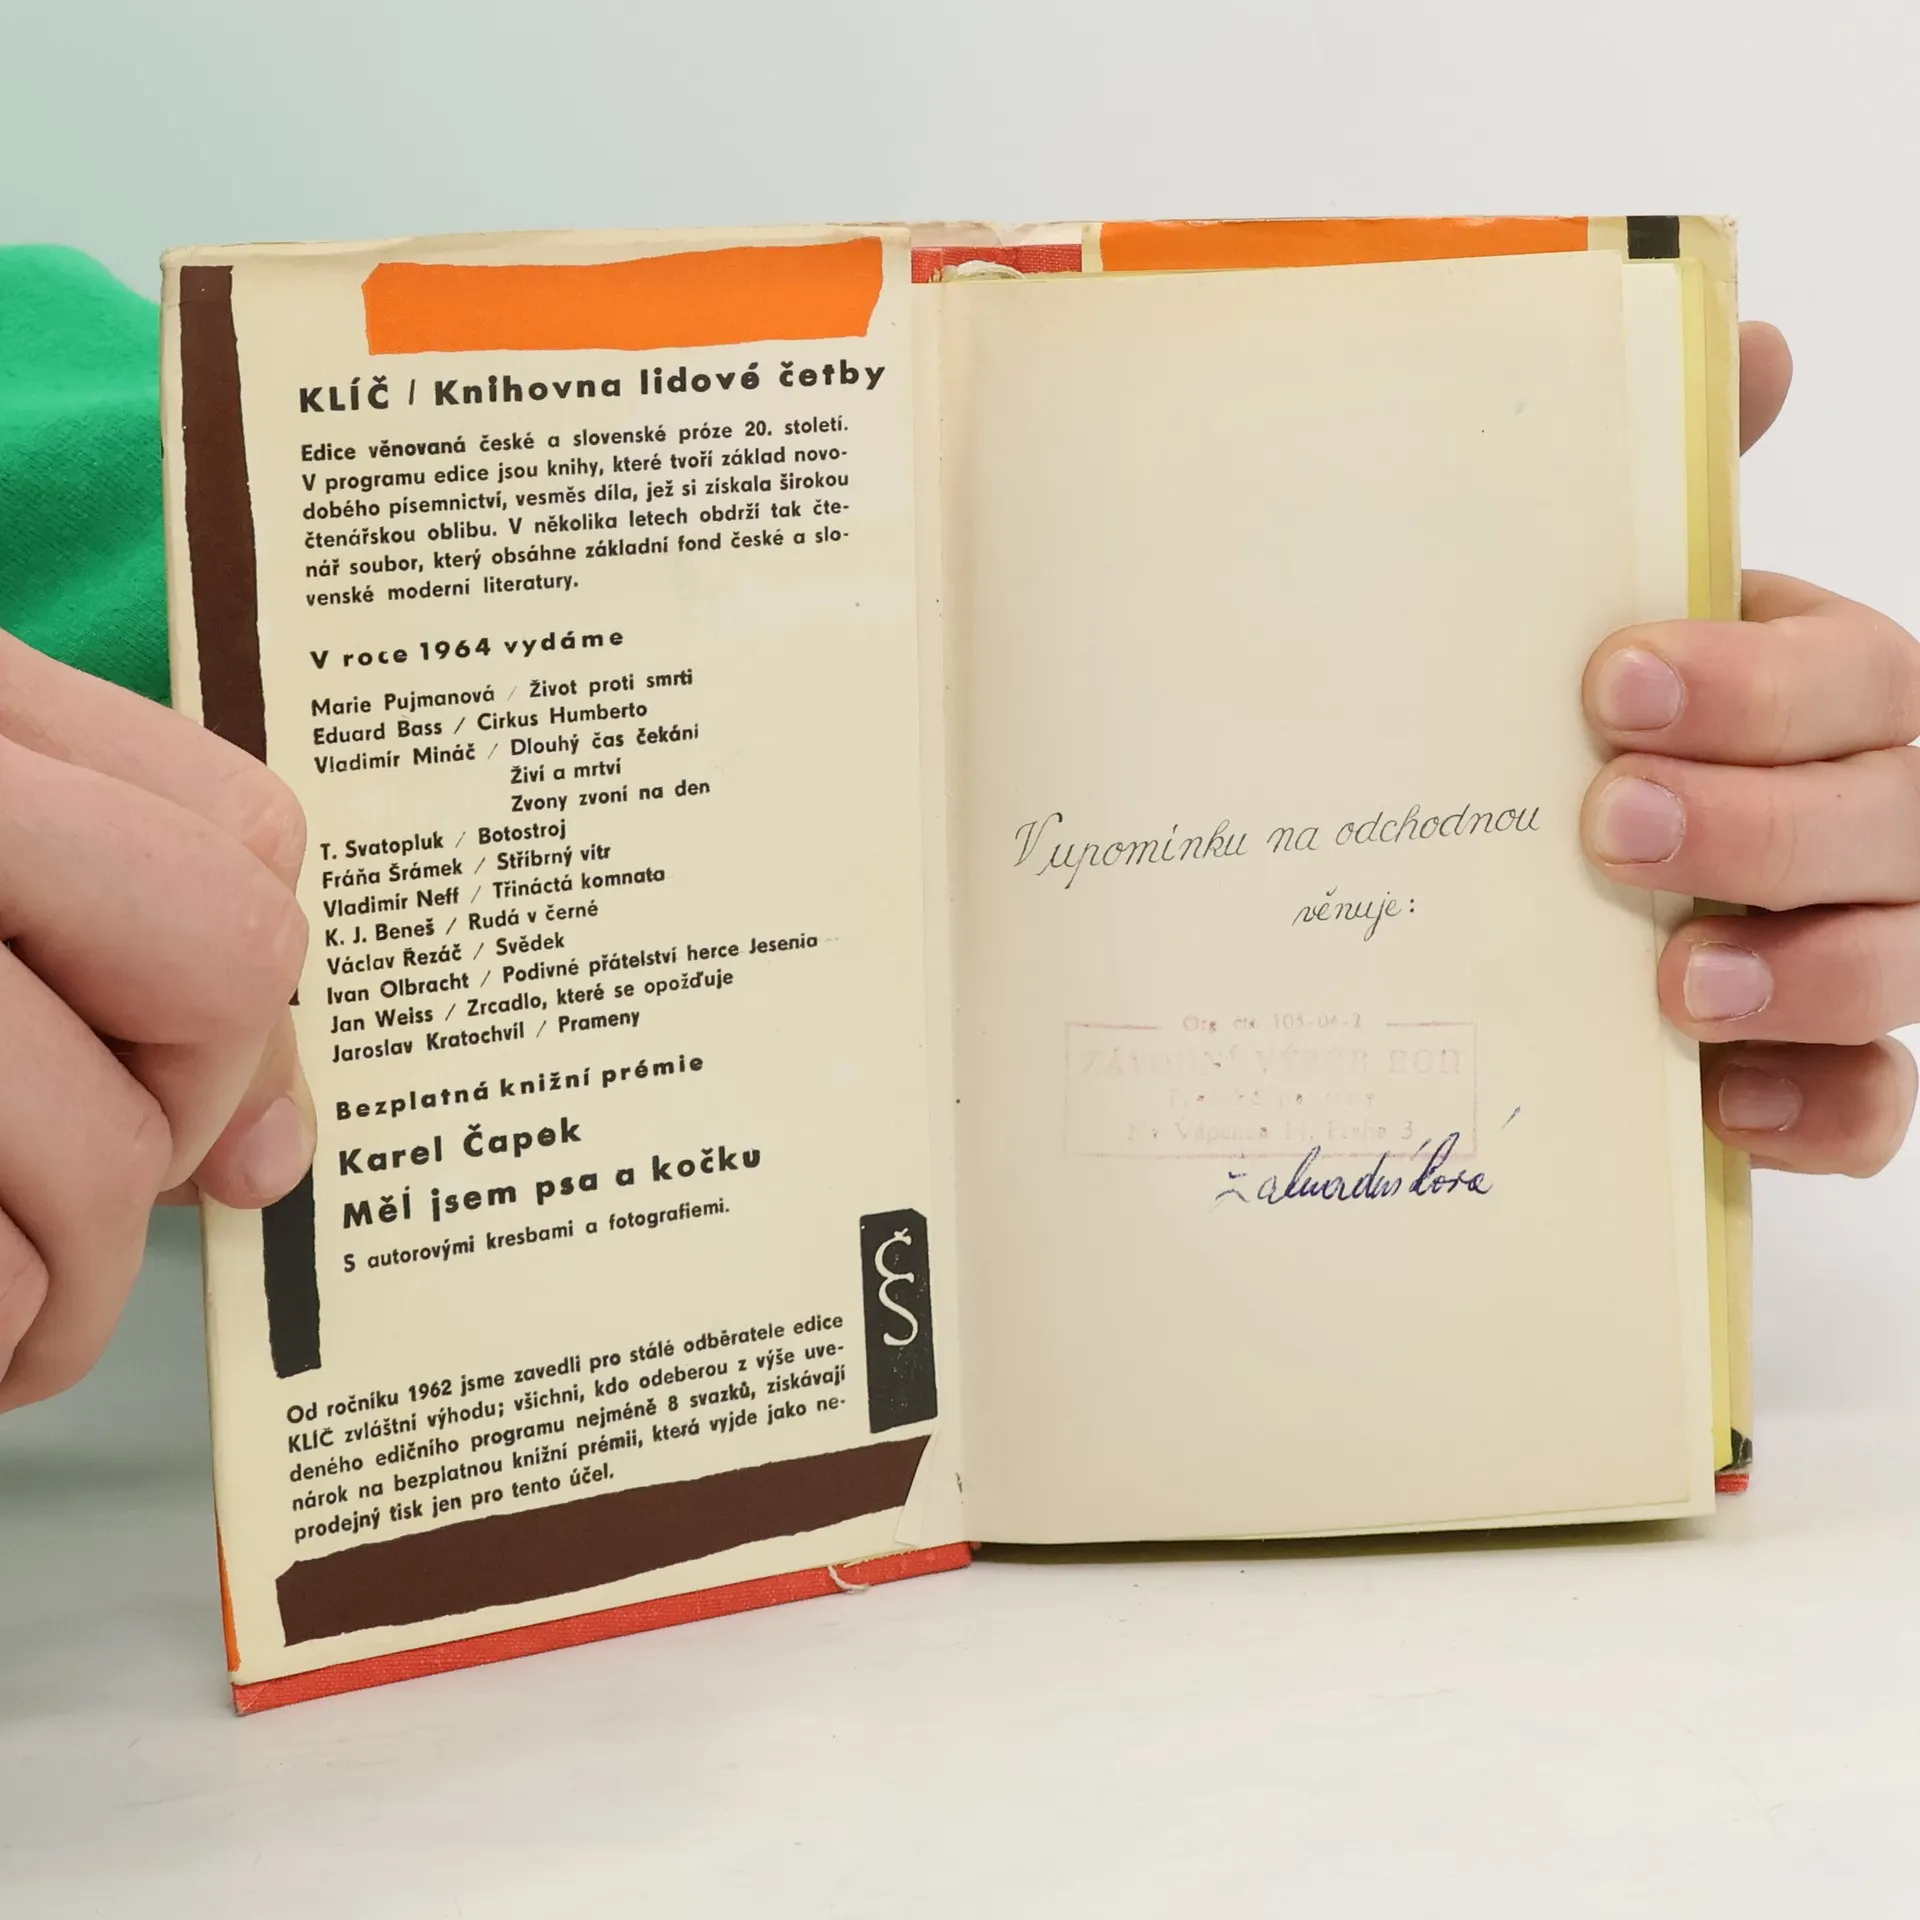 KLÍČ / Knihovna lidové četby
Edice věnovaná české a slovenské próze 20. století.
V programu edice jsou knihy, které tvoří základ novo-
dobého písemnictví, vesměs díla, jež si získala širokou
čtenářskou oblibu. V několika letech obdrží tak čte-
nář soubor, který obsáhne základní fond české a slo-
venské moderní literatury.
V roce 1964 vydáme
Marie Pujmanová / Život proti smrti
Eduard Bass / Cirkus Humberto
Vladimír Mináč / Dlouhý čas čekání
Živí a mrtví
Zvony zvoní na den
T. Svatopluk / Botostroj
Fráňa Šrámek / Stříbrný vítr
Vladimír Neff / Třináctá komnata
K. J. Beneš / Rudá v černé
Václav Řezáč / Svědek
Ivan Olbracht / Podivné přátelství herce Jesenia
Jan Weiss / Zrcadlo, které se opožďuje
Jaroslav Kratochvíl / Prameny
Bezplatná knižní prémie
Karel Čapek
Měl jsem psa a kočku
S autorovými kresbami a fotografiemi.
ČS
Od ročníku 1962 jsme zavedli pro stálé odběratele edice
KLÍČ zvláštní výhodu; všichni, kdo odeberou z výše uve-
deného edičního programu nejméně 8 svazků, získávají
nárok na bezplatnou knižní prémii, která vyjde jako ne-
prodejný tisk jen pro tento účel.
V upomínku na odchodnou
věnuje:
105-04-2
ZÁVODNÍ VÝBOR ROH
Na Vápence 14, Praha 3